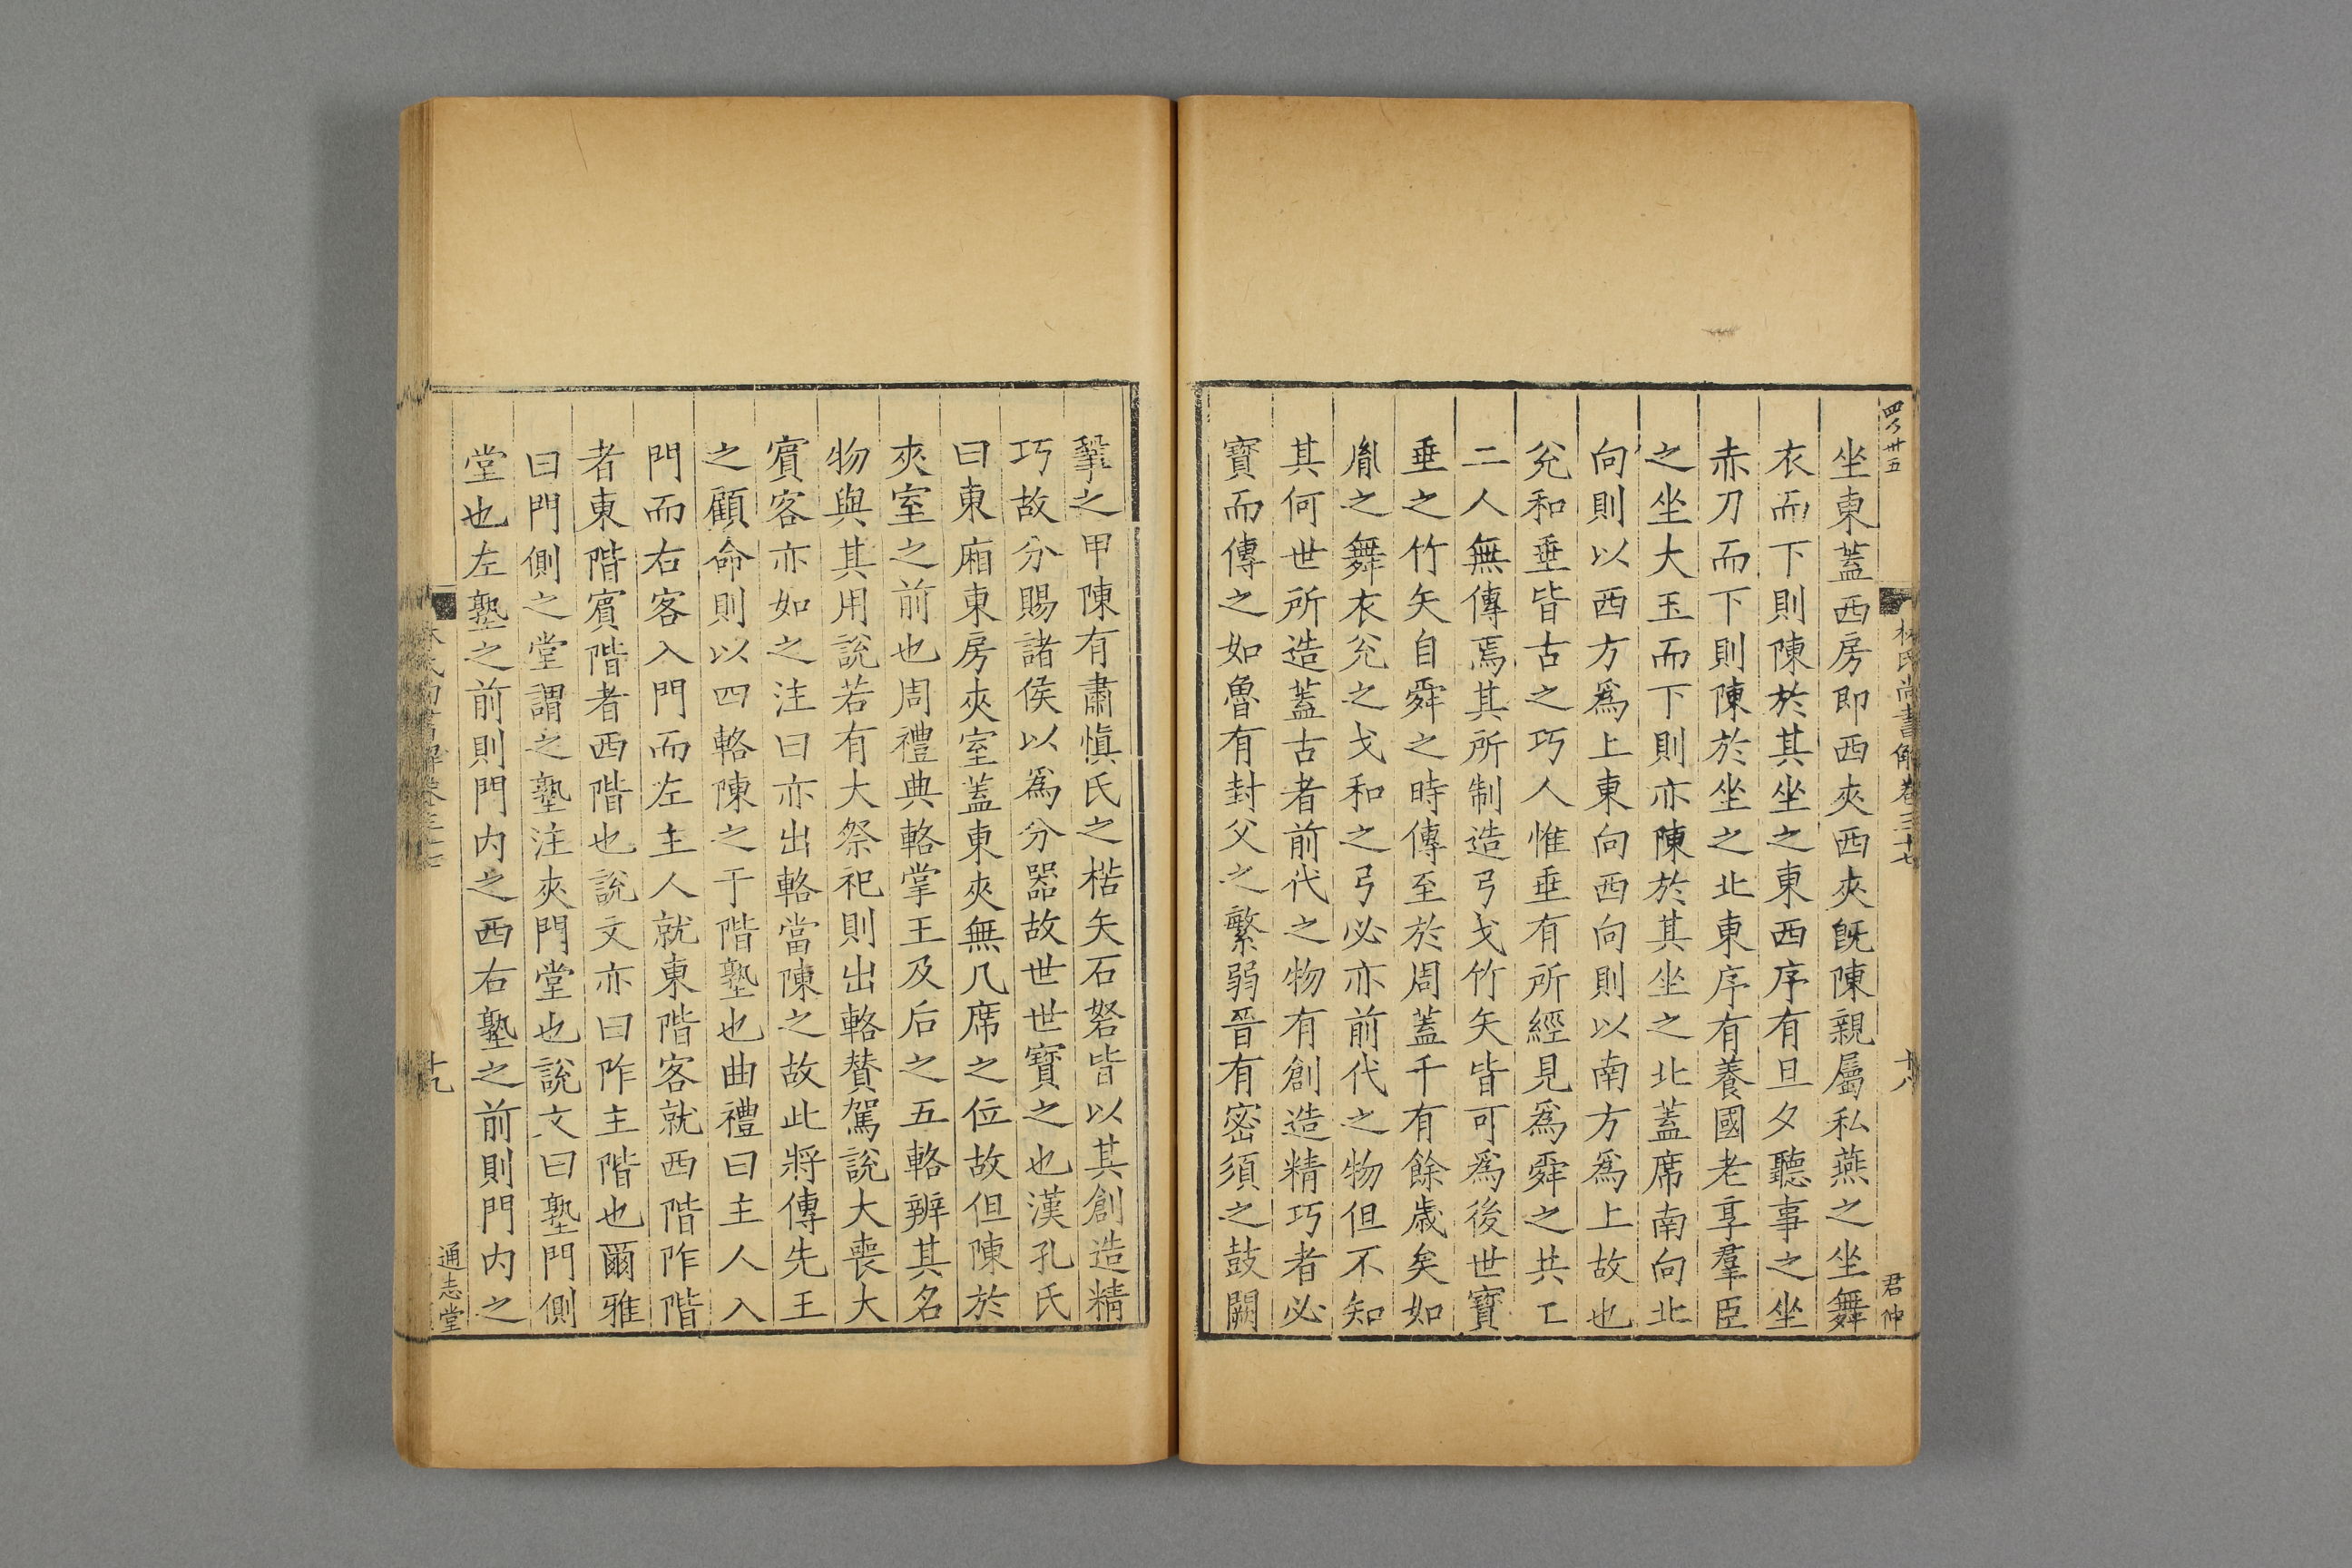 四百卅五
林氏尚書解卷三十七
十八
君仲
坐東蓋西房即西夾西夾旣陳親屬私燕之坐舞
衣而下則陳於其坐之東西序有旦夕聽事之坐
赤刀而下則陳於坐之北東序有養國老享羣臣
之坐大玉而下則亦陳於其坐之北蓋席南向北
向則以西方爲上東向西向則以南方爲上故也
兊和垂皆古之巧人惟垂有所經見爲舜之共工
二人無傳焉其所制造弓戈竹矢皆可爲後世寶
垂之竹矢自舜之時傳至於周蓋千有餘歳矣如
胤之舞衣兊之戈和之弓必亦前代之物但不知
其何世所造蓋古者前代之物有創造精巧者必
寳而傳之如魯有封父之繁弱晉有密須之鼓闕
鞏之甲陳有肅愼氏之楛矢石砮皆以其創造精
巧故分賜諸侯以爲分器故世世寳之也漢孔氏
曰東廂東房夾室蓋東夾無几席之位故但陳於
夾室之前也周禮典輅掌王及后之五輅辨其名
物與其用說若有大祭祀則出輅贊駕說大喪大
賓客亦如之注曰亦出輅當陳之故此將傳先王
之顧命則以四輅陳之于階塾也曲禮曰主人入
門而右客入門而左主人就東階客就西階阼階
者東階賓階者西階也說文亦曰阼主階也爾雅
曰門側之堂謂之塾注夾門堂也說文曰塾門側
堂也左塾之前則門内之西右塾之前則門内之
林氏尚書解卷三十七
十九
通志堂